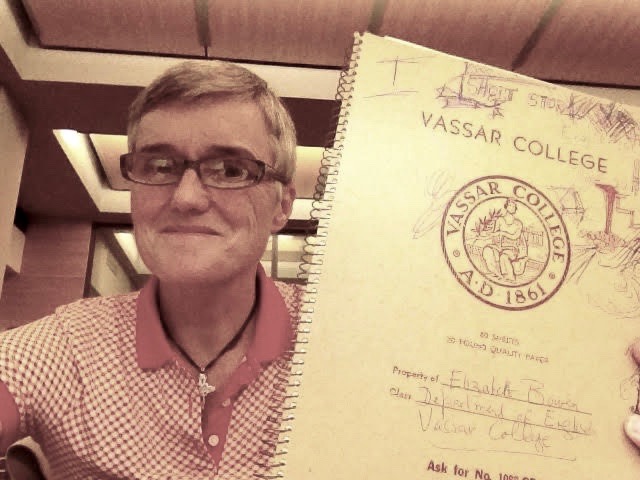 I
SHORT STORY
VASSAR COLLEGE
VASSAR COLLEGE
• A.D. 1861 •
80 SHEETS
Property of Elizabeth Bowen
Class Department of English
Vassar College
Ask for No.